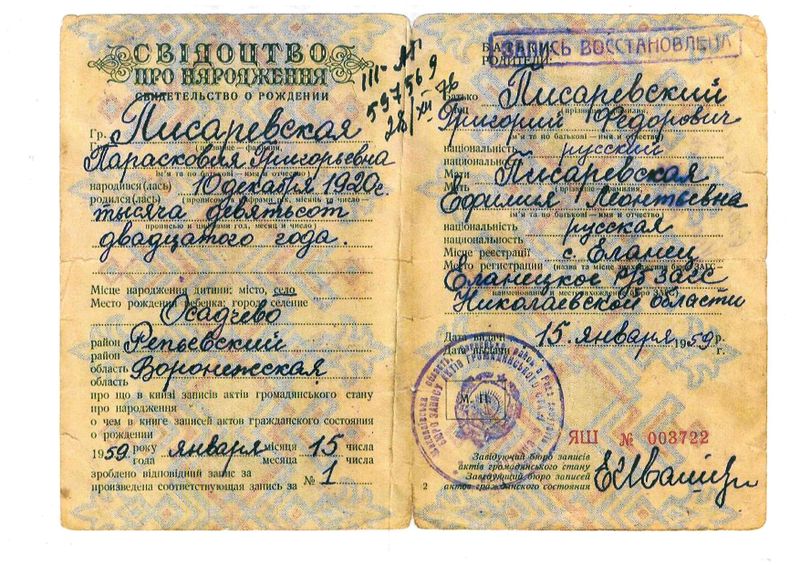 СВІДОЦТВО
ПРО НАРОДЖЕННЯ
СВИДЕТЕЛЬСТВО О РОЖДЕНИИ
III-АП
597569
28/XII 76
Гр. Писаревская
(прізвище — фамилия,
Парасковия Григорьевна
ім'я та по батькові — имя и отчество)
народився(лась) 10 декабря 1920 г.
родился(лась) (прописом число —
тысяча девятьсот
прописью и цифрами год, месяц и число)
двадцатого года.
Місце народження дитини: місто, село
Место рождения ребенка: город, селение
Осадчево
район Репьевский
район
область Воронежская
область
про що в книзі записів актів громадянського стану
про народження
о чем в книге записей актов гражданского состояния
о рождении
1959 року января місяця 15 числа
года месяца числа
зроблено відповідний запис за
произведена соответствующая запись за № 1
ЗАПИСЬ ВОССТАНОВЛЕНА
БАТЬКИ
РОДИТЕЛИ:
Батько Писаревский
Григорий Федорович
ім'я та по батькові — имя и отчество
національність русский
национальность
Мати Писаревская
Мать
Ефимия Леонтьевна
ім'я та по батькові — имя и отчество
національність русская
национальность
Місце реєстрації с. Еланец
Место регистрации (назва та місце знаходження бюро ЗАГС
Еланецкое РБ ЗАГС
Николаевской области
Дата видачі 15. января 1959 р.
Дата выдачи г.
М. П.
ЯШ № 003722
Завідуючий бюро записів
актів громадянського стану
Заведующий бюро записей
актов гражданского состояния
2